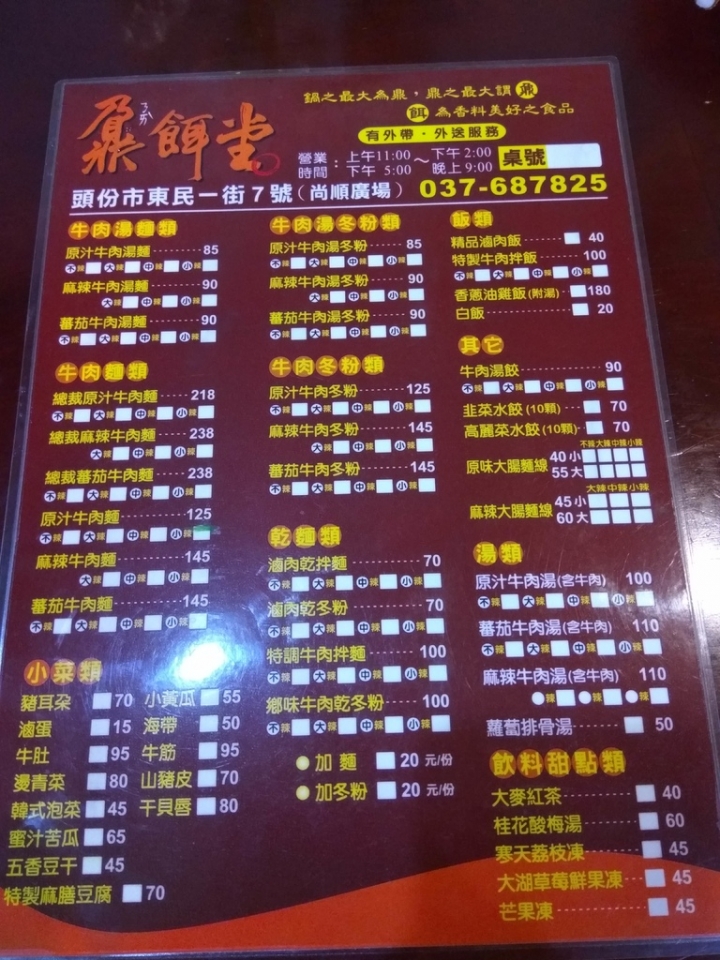 鼐餌堂
ㄋㄞˋ
鍋之最大為鼎,鼎之最大謂鼐
餌為香料美好之食品
有外帶・外送服務
營業時間:上午11:00～下午2:00
下午 5:00 晚上9:00
桌號
頭份市東民一街7號(尚順廣場) 037-687825
牛肉湯麵類
原汁牛肉湯麵 85
不辣 大辣 中辣 小辣
麻辣牛肉湯麵 90
大辣 中辣 小辣
蕃茄牛肉湯麵 90
不辣 大辣 中辣 小辣
牛肉麵類
總裁原汁牛肉麵 218
不辣 大辣 中辣 小辣
總裁麻辣牛肉麵 238
大辣 中辣 小辣
總裁蕃茄牛肉麵 238
不辣 大辣 中辣 小辣
原汁牛肉麵 125
不辣 大辣 中辣 小辣
麻辣牛肉麵 145
大辣 中辣 小辣
蕃茄牛肉麵 145
不辣 大辣 中辣 小辣
小菜類
豬耳朵 70 小黃瓜 55
滷蛋 15 海帶 50
牛肚 95 牛筋 95
燙青菜 80 山豬皮 70
韓式泡菜 45 干貝唇 80
蜜汁苦瓜 65
五香豆干 45
特製麻膳豆腐 70
牛肉湯冬粉類
原汁牛肉湯冬粉 85
不辣 大辣 中辣 小辣
麻辣牛肉湯冬粉 90
大辣 中辣 小辣
蕃茄牛肉湯冬粉 90
不辣 大辣 中辣 小辣
牛肉冬粉類
原汁牛肉冬粉 125
不辣 大辣 中辣 小辣
麻辣牛肉冬粉 145
大辣 中辣 小辣
蕃茄牛肉冬粉 145
不辣 大辣 中辣 小辣
乾麵類
滷肉乾拌麵 70
不辣 大辣 中辣 小辣
滷肉乾冬粉 70
不辣 大辣 中辣 小辣
特調牛肉拌麵 100
不辣 大辣 中辣 小辣
鄉味牛肉乾冬粉 100
不辣 大辣 中辣 小辣
加麵 20 元/份
加冬粉 20 元/份
飯類
精品滷肉飯 40
特製牛肉拌飯 100
不辣 大辣 中辣 小辣
香蔥油雞飯(附湯) 180
白飯 20
其它
牛肉湯餃 90
不辣 大辣 中辣 小辣
韭菜水餃(10顆) 70
高麗菜水餃(10顆) 70
不辣 大辣 中辣 小辣
原味大腸麵線 40小
55大
大辣 中辣 小辣
麻辣大腸麵線 45小
60大
湯類
原汁牛肉湯(含牛肉) 100
不辣 大辣 中辣 小辣
蕃茄牛肉湯(含牛肉) 110
不辣 大辣 中辣 小辣
麻辣牛肉湯(含牛肉) 110
辣 辣 辣
蘿蔔排骨湯 50
飲料甜點類
大麥紅茶 40
桂花酸梅湯 60
寒天荔枝凍 45
大湖草莓鮮果凍 45
芒果凍 45